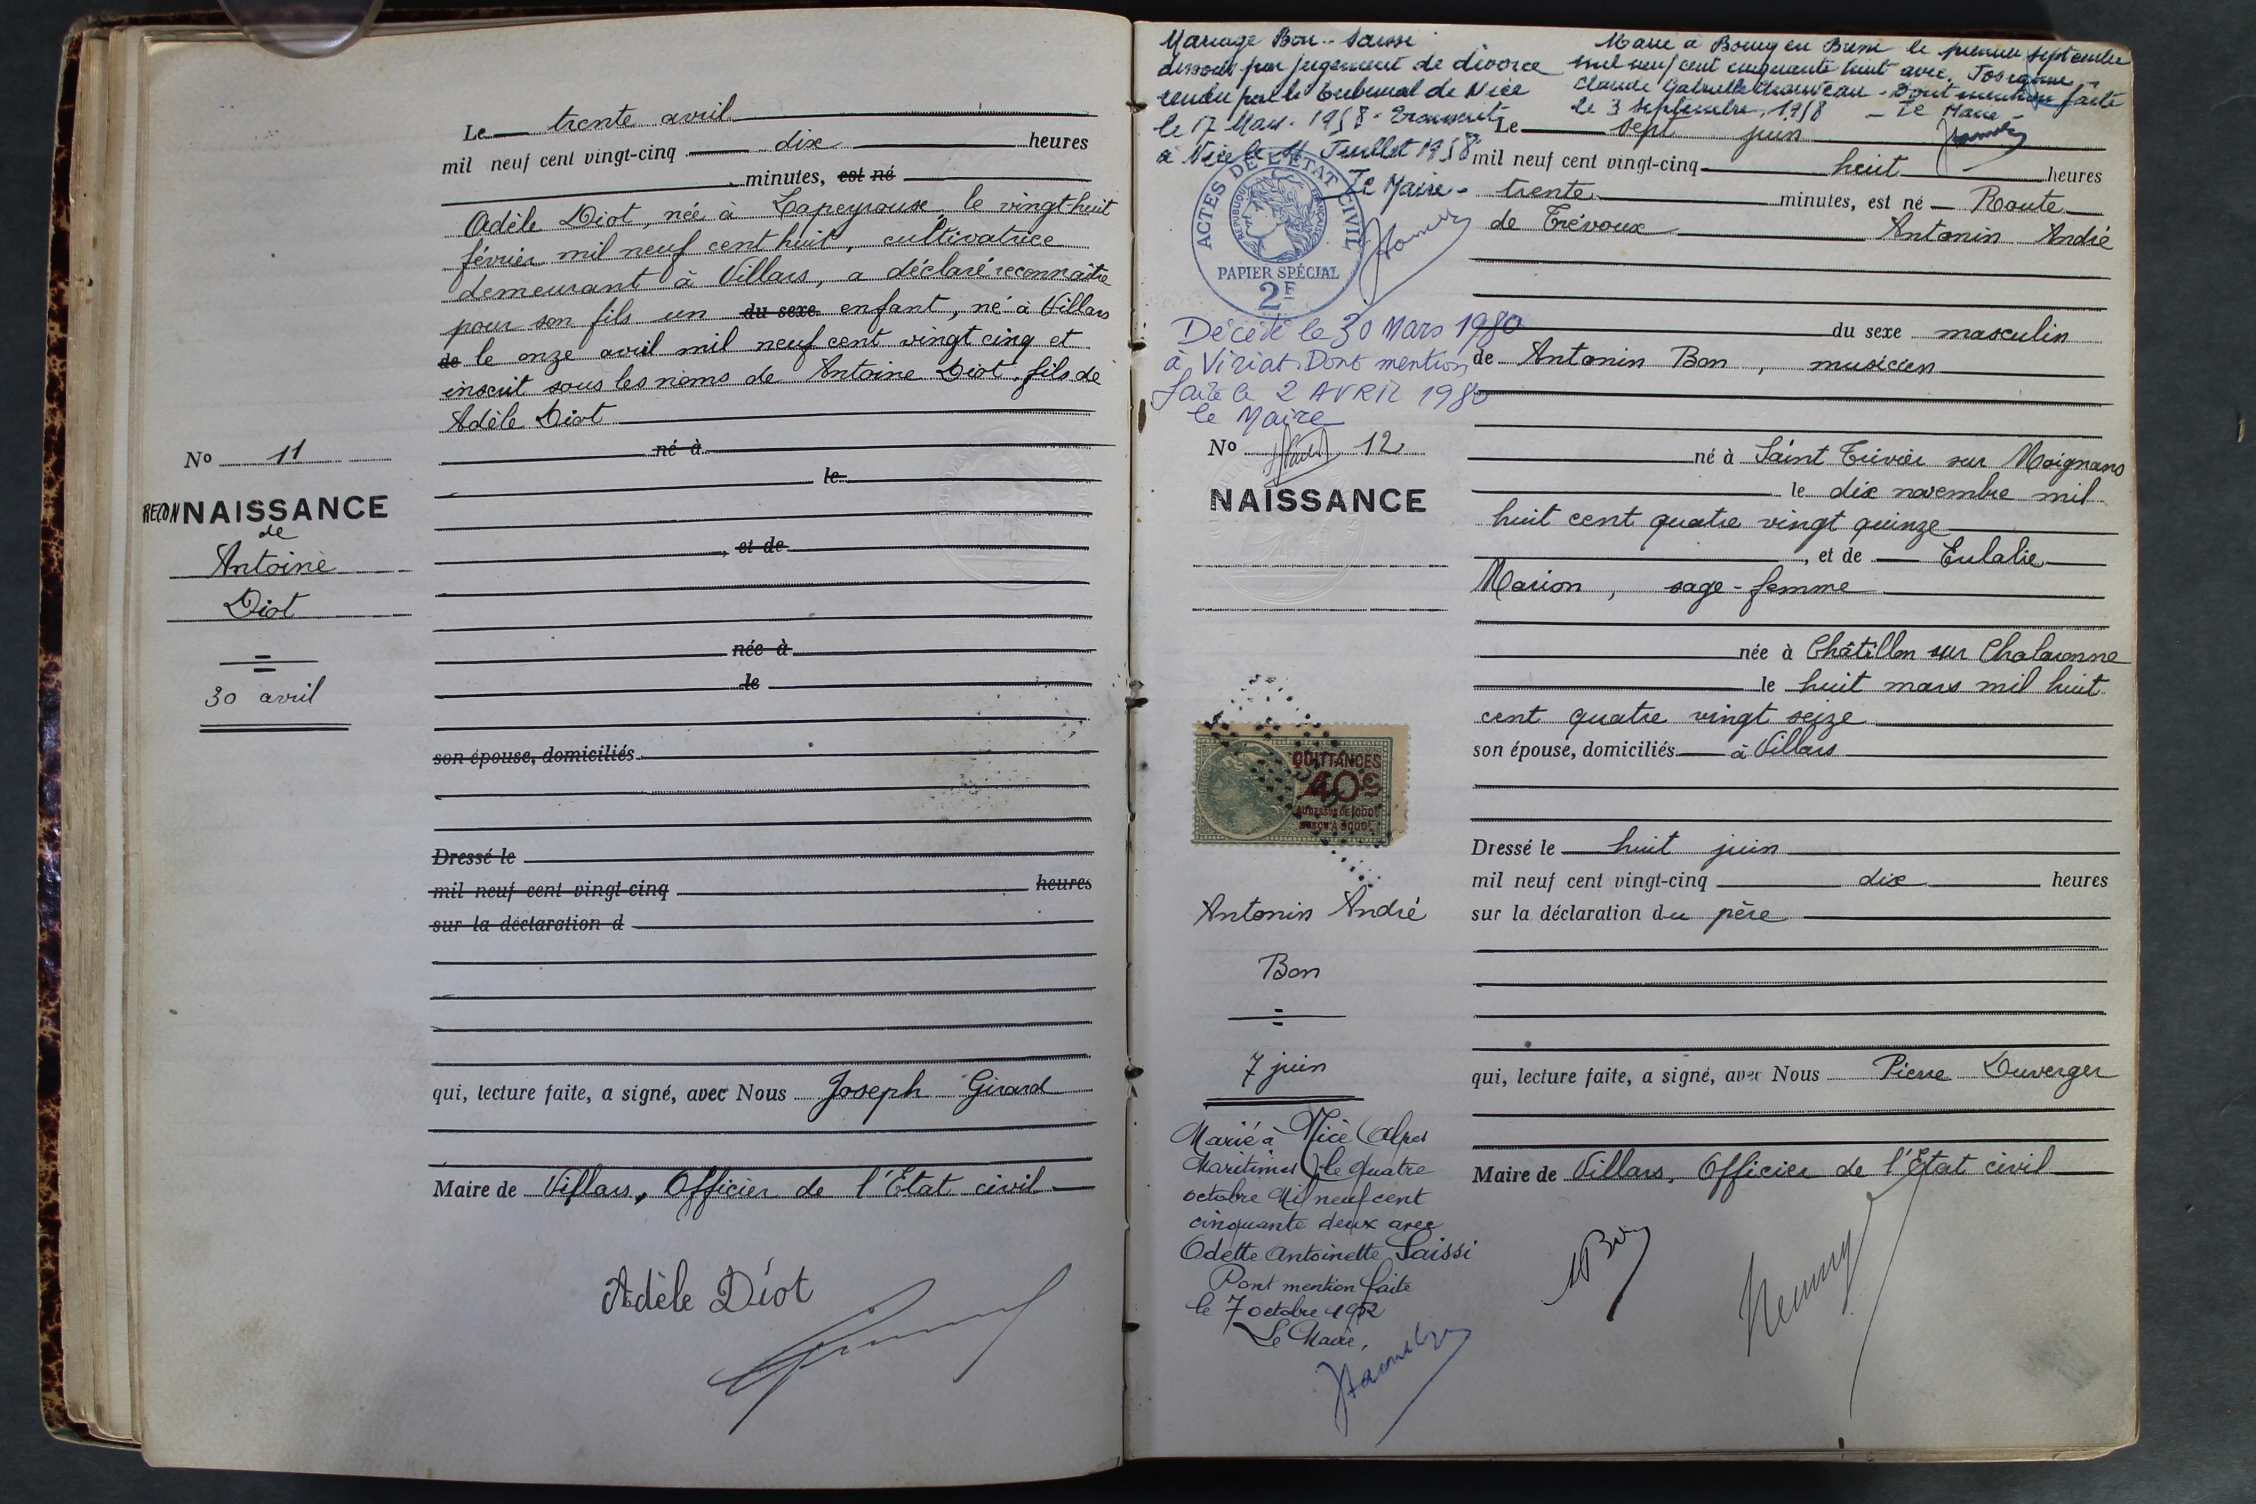 Le trente avril
mil neuf cent vingt-cinq dix heures
minutes, est né
Adèle Diot, née à Lapeyrouse, le vingt-huit
février mil neuf cent huit, cultivatrice
demeurant à Villars, a déclaré reconnaître
pour son fils un du sexe enfant, né à Villars
de le onze avril mil neuf cent vingt cinq et
inscrit sous les noms de Antoine Diot, fils de
Adèle Diot
né à
le
, et de
née à
le
son épouse, domiciliés
Dressé le
mil neuf cent vingt-cinq heures
sur la déclaration d
qui, lecture faite, a signé, avec Nous Joseph Girard
Maire de Villars, Officier de l'Etat civil
Adèle Diot
No 11
RECONNAISSANCE
de
Antoine
Diot
30 avril
Mariage Bon - Saissi
dissous par jugement de divorce
rendu par le Tribunal de Nice
le 17 Mars 1958 - Transcrit
à Nice le Juillet 1958
Le Maire -
Marié à Bourg en Bresse le premier septembre
mil neuf cent cinquante huit avec Josiane
Claude Gabrielle - Dont mention faite
le 3 septembre 1958 - Le Maire
ACTES DE L'ÉTAT CIVIL
RÉPUBLIQUE FRANÇAISE
PAPIER SPÉCIAL
2F
Décédé le 30 Mars 1980
à Viriat. Dont mention
faite le 2 AVRIL 1980
le Maire
No 12
NAISSANCE
QUITTANCES
40c
AU DESSUS DE 1000F
JUSQU'A 3000F
Antonin André
Bon
7 juin
Marié à Nice (Alpes
Maritimes) le quatre
octobre Mil neuf cent
cinquante deux avec
Odette Antoinette Saissi
Dont mention faite
le 7 octobre 1952
Le Maire,
Le sept juin
mil neuf cent vingt-cinq huit heures
trente minutes, est né Route
de Trévoux Antonin André
du sexe masculin
de Antonin Bon, musicien
né à Saint Trivier sur Moignans
le dix novembre mil
huit cent quatre vingt quinze
, et de Eulalie
Marion, sage-femme
née à Châtillon sur Chalaronne
le huit mars mil huit
cent quatre vingt seize
son épouse, domiciliés à Villars
Dressé le huit juin
mil neuf cent vingt-cinq dix heures
sur la déclaration du père
qui, lecture faite, a signé, avec Nous Pierre Duverger
Maire de Villars, Officier de l'Etat civil